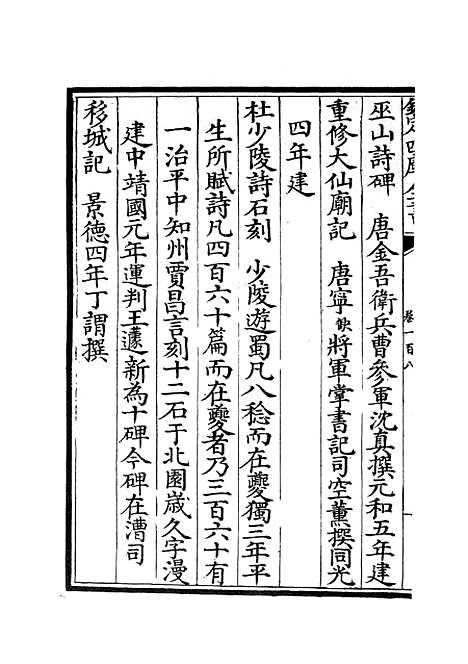 卷一百八
巫山詩碑　唐金吾衛兵曹參軍沈真撰元和五年建
重修大仙廟記　唐寧缺將軍掌書記司空薫撰同光
四年建
杜少陵詩石刻　少陵遊蜀凡八稔而在夔獨三年平
生所賦詩凡四百六十篇而在夔者乃三百六十有
一治平中知州賈昌言刻十二石于北園歲久字漫
建中靖國元年運判王蘧新為十碑今碑在漕司
移城記　景德四年丁謂撰